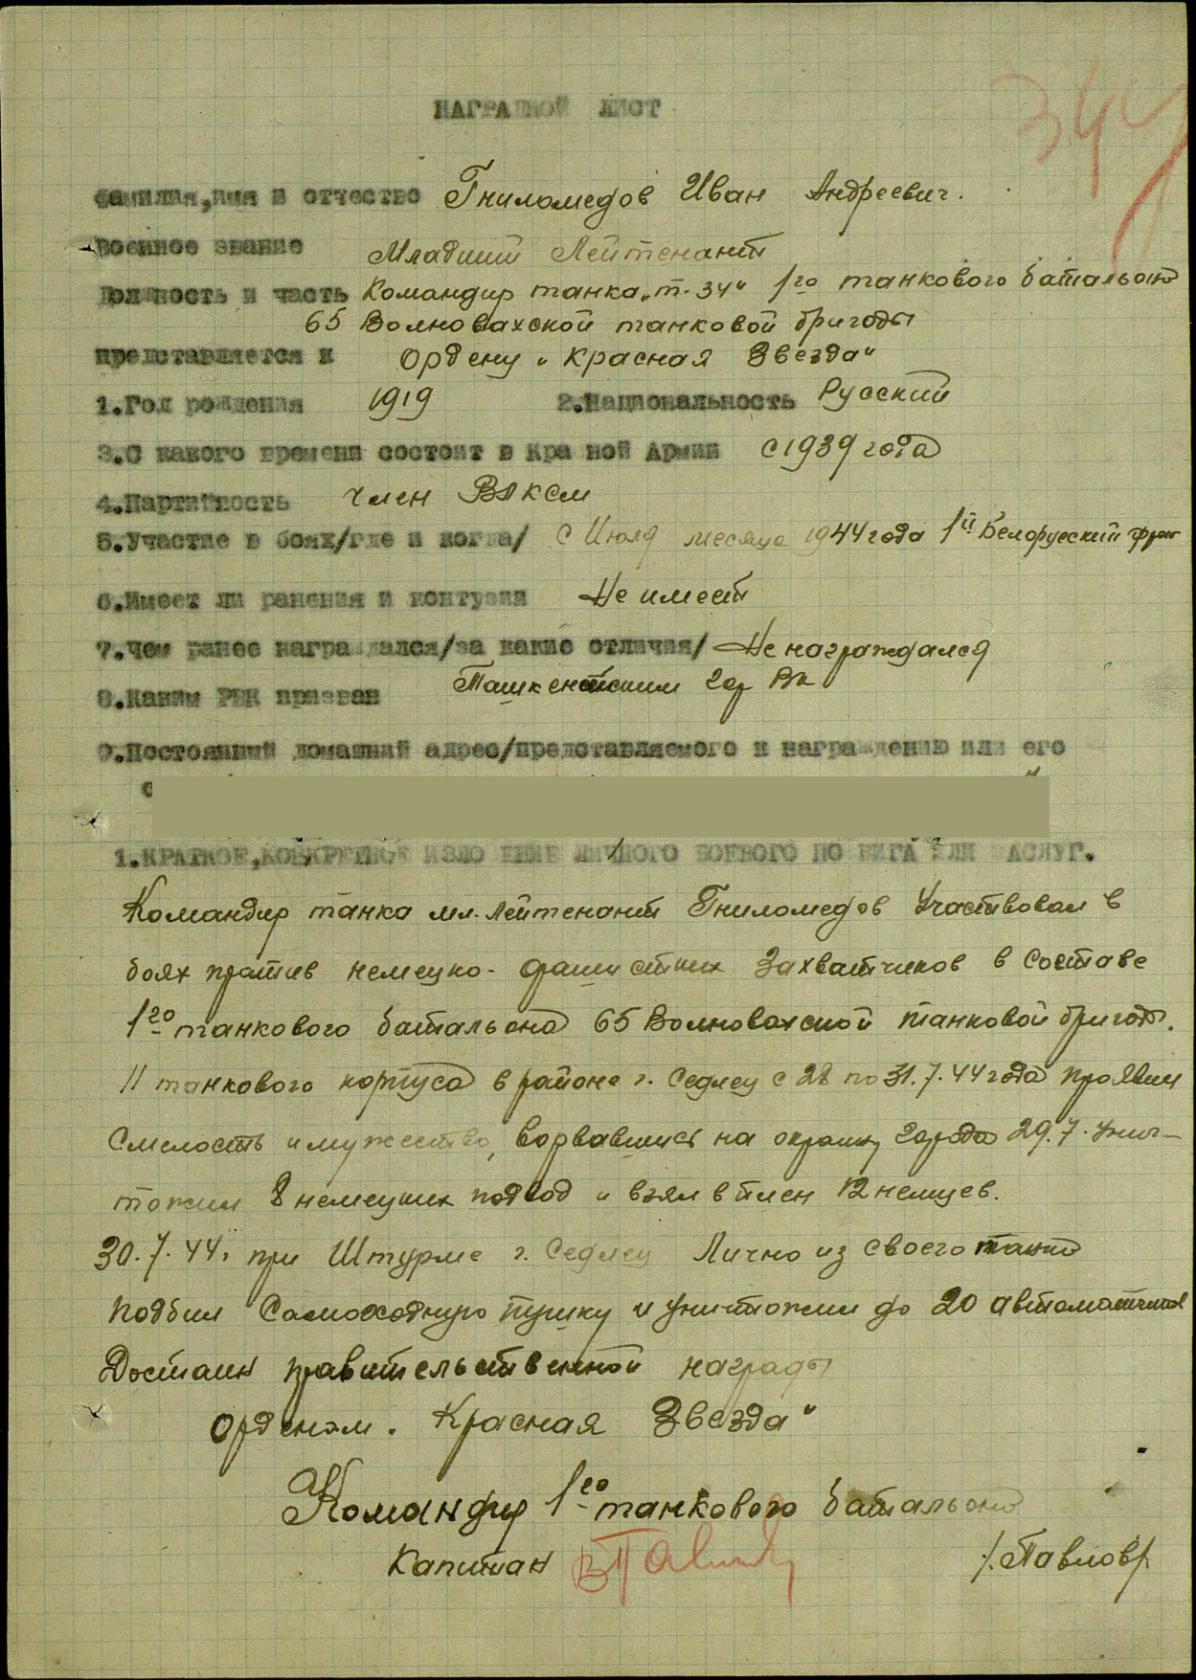 344
НАГРАДНОЙ ЛИСТ
Фамилия,имя и отчество Гниломедов Иван Андреевич.
Военное звание Младший Лейтенант
Должность и часть Командир танка „Т-34“ 1го танкового батальона
65 Волновахской танковой бригады
представляется к Ордену „Красная Звезда“
1.Год рождения 1919 2.Национальность Русский
3.С какого времени состоит в Кра ной Армии с 1939 года
4.Партийность член ВЛКСМ
5.Участие в боях/где и когда/ с Июля месяца 1944 года 1й Белорусский фрон
6.Имеет ли ранения и контузии Не имеет
7.Чем ранее награждался/за какие отличия/ Не награждался
8.Каким РВК призван Ташкентским гор ВК
9.Постоянный домашний адрес/представляемого к награждению или его
с
1.КРАТКОЕ,КОНКРЕТНОЕ ИЗЛО ЕНИЕ ЛИЧНОГО БОЕВОГО ПО ВИГА ИЛИ ЗАСЛУГ.
Командир танка мл. Лейтенант Гниломедов Участвовал в
боях против немецко-фашистких захватчиков в составе
1го танкового батальона 65 Волновахской танковой бригады.
11 танкового корпуса в районе г. Седлец с 28 по 31.7.44 года проявил
Смелость и мужество, ворвавшись на окраину города 29.7. унич-
тожил 8 немецких подвод и взял в плен 12 немцев.
30.7.44. при Штурме г. Седлец Лично из своего танка
подбил Самоходную пушку и уничтожил до 20 автоматчиков
Достоин правительственной награды
орденом „Красная Звезда“
Командир 1го танкового батальона
Капитан /Павлов/